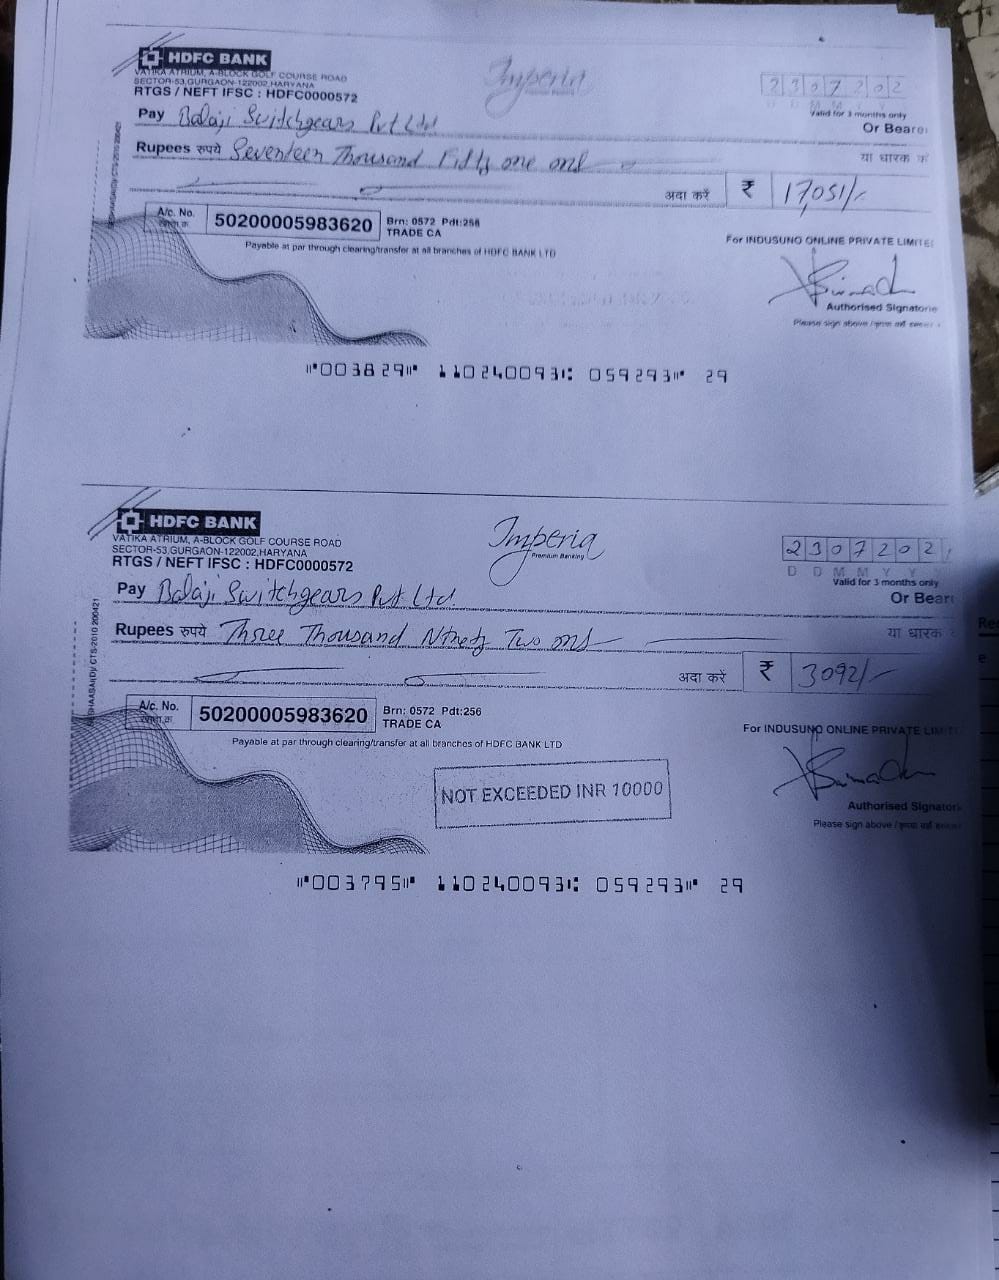 HDFC BANK
VATIKA ATRIUM, A-BLOCK GOLF COURSE ROAD
SECTOR-53,GURGAON-122002,HARYANA
RTGS / NEFT IFSC : HDFC0000572
Imperia
Premium Banking
2307202
D D M M Y Y
Valid for 3 months only
Pay Balaji Switchgears Pvt Ltd
Or Bearer
Rupees रुपये Seventeen Thousand Fifty one only
या धारक को
अदा करें ₹ 17,051/-
A/c. No. 50200005983620
Brn: 0572 Pdt:256
TRADE CA
Payable at par through clearing/transfer at all branches of HDFC BANK LTD
For INDUSUNO ONLINE PRIVATE LIMITE
Authorised Signatorie
Please sign above /
⑈003829⑈ 110240093⑆ 059293⑈ 29
HDFC BANK
VATIKA ATRIUM, A-BLOCK GOLF COURSE ROAD
SECTOR-53,GURGAON-122002,HARYANA
RTGS / NEFT IFSC : HDFC0000572
Imperia
Premium Banking
2307202
D D M M Y Y Y
Valid for 3 months only
Pay Balaji Switchgears Pvt Ltd.
Or Bear
Rupees रुपये Three Thousand Ninety Two only
या धारक
अदा करें ₹ 3092/-
A/c. No. 50200005983620
Brn: 0572 Pdt:256
TRADE CA
Payable at par through clearing/transfer at all branches of HDFC BANK LTD
For INDUSUNO ONLINE PRIVATE LIMIT
NOT EXCEEDED INR 10000
Authorised Signatori
Please sign above /
⑈003795⑈ 110240093⑆ 059293⑈ 29